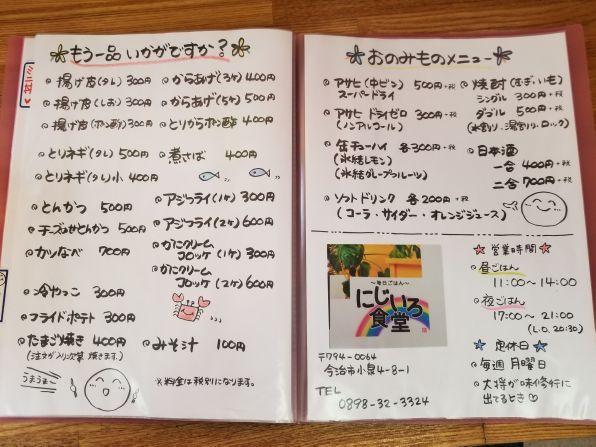 もう一品 いかがですか?
揚げ皮(タレ) 300円
揚げ皮(しお) 300円
揚げ皮(ポン酢) 300円
とりネギ(タレ) 500円
とりネギ(タレ)小 400円
とんかつ 500円
チーズみそとんかつ 500円
カツなべ 700円
冷やっこ 300円
フライドポテト 300円
たまご焼き 400円
(注文が入り次第 焼きます。)
うまうま〜
からあげ(3ケ) 400円
からあげ(5ケ) 500円
とりからポン酢 400円
煮さば 400円
アジフライ(1ケ) 300円
アジフライ(2ケ) 600円
かにクリーム
コロッケ(1ケ) 300円
かにクリーム
コロッケ(2ケ) 600円
みそ汁 100円
※料金は税別になります。
おのみものメニュー
アサヒ(中ビン) 500円+税
スーパードライ
アサヒ ドライゼロ 300円+税
(ノンアルコール)
缶チューハイ 各300円+税
(氷結レモン)
(氷結グレープフルーツ)
ソフトドリンク 各200円+税
(コーラ・サイダー・オレンジジュース)
焼酎(むぎ・いも)
シングル 300円+税
ダブル 500円+税
(水割り・湯割り・ロック)
日本酒
一合 400円+税
二合 700円+税
〜毎日ごはん〜
にじいろ
食堂
〒794-0064
今治市小泉4-8-1
TEL
0898-32-3324
営業時間
昼ごはん
11:00〜14:00
夜ごはん
17:00〜21:00
(L.O. 20:30)
定休日
毎週 月曜日
大将が味修行に
出てるとき♡